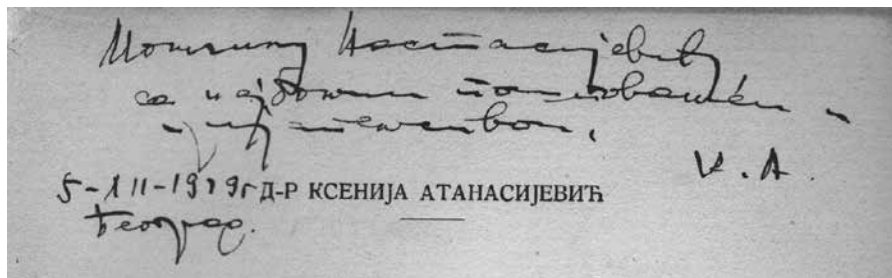 Момчилу Настасијевићу
са најбољим поштовањем и
пријатељством,
К. А.
5-XII-1929 г Д-Р КСЕНИЈА АТАНАСИЈЕВИЋ
Београд.